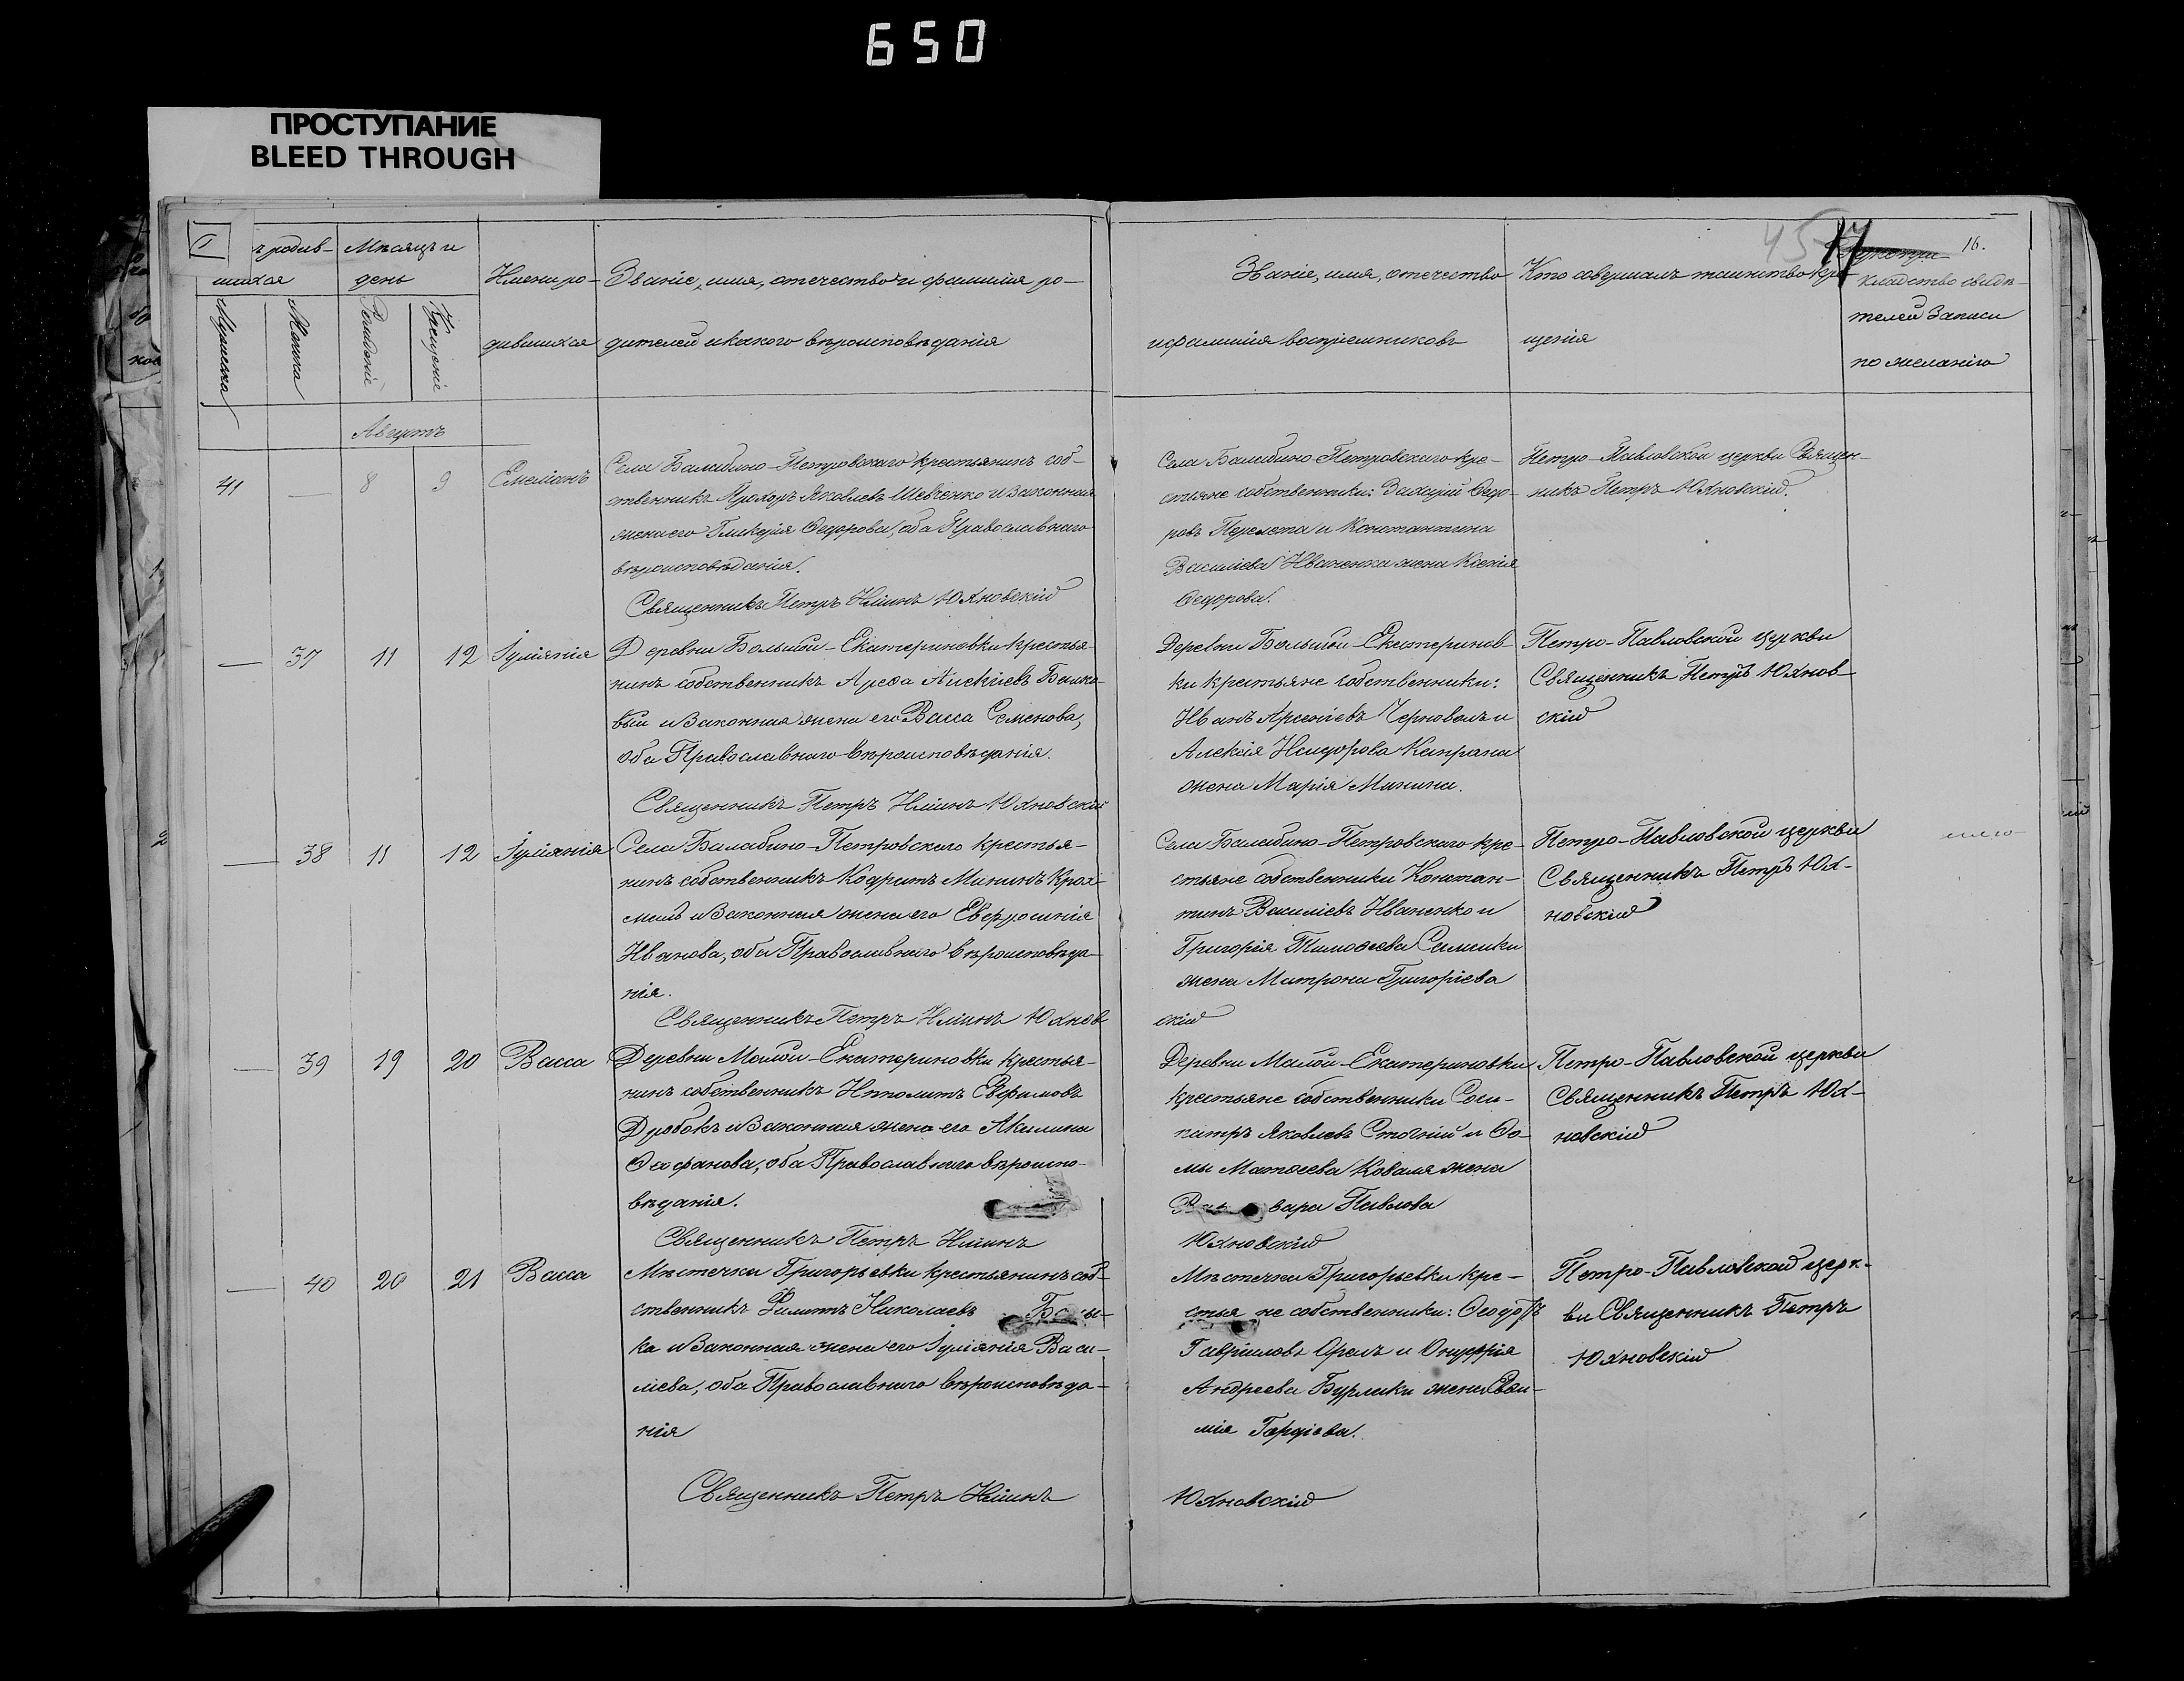 650
ПРОСТУПАНИЕ
BLEED THROUGH
I
ъ родив-
шихся
Мужеска
Женска
Мѣсяцъ и
день
Рожденіе
Крещеніе
Имена ро-
дившихся
Званіе, имя, отечество и фамилія ро-
дителей и какого вѣроисповѣданія
Званіе, имя, отечество
и фамилія воспріемниковъ
Кто совершалъ таинство кре-
щенія
45
17
16.
кладство свидѣ-
телей записи
по желанію
Августъ
41 — 8 9 Емеліанъ
Села Балабино-Петровскаго крестьянинъ соб-
ственникъ Прохоръ Яковлевъ Шевченко и законная
жена его Гликерія Ѳедорова, оба Православнаго
вѣроисповѣданія.
Священникъ Петръ Юхновскій
Села Балабино-Петровскаго кре-
стьяне собственники: Захарій Ѳедо-
ровъ Перелета и Константина
Василіева Иваненка жена Ксенія
Ѳедорова.
Петро-Павловской церкви Священ-
никъ Петръ Юхновскій.
— 37 11 12 Іуліанія
Деревни Большой-Екатериновки крестья-
нинъ собственникъ Арефа Алексіевъ
вый и законная жена его Васса Семенова,
оба Православнаго вѣроисповѣданія.
Священникъ Петръ Юхновскій
Деревни Большой-Екатеринов-
ки крестьяне собственники:
Иванъ Арсеніевъ Черноволъ и
Алексія Исидорова Капрана
жена Марія Минина.
Петро-Павловской церкви
Священникъ Петръ Юхнов-
скій
— 38 11 12 Іуліанія
Села Балабино-Петровскаго крестья-
нинъ собственникъ Кодратъ Мининъ
и законная жена его Евфросинія
Иванова, оба Православнаго вѣроисповѣда-
нія.
Священникъ Петръ Юхнов
скій
Села Балабино-Петровскаго кре-
стьяне собственники Констан-
тинъ Василіевъ Иваненко и
Григорія Тимоѳеева Самошки
жена Матрона Григоріева
Петро-Павловской церкви
Священникъ Петръ Юх-
новскій
— 39 19 20 Васса
Деревни Малой-Екатериновки крестья-
нинъ собственникъ Ипполитъ Евфимовъ
Дробокъ и законная жена его Акилина
Ѳеофанова, оба Православнаго вѣроиспо-
вѣданія.
Священникъ Петръ
Юхновскій
Деревни Малой-Екатериновки
крестьяне собственники Соси-
патръ Яковлевъ Стогній и Ѳо-
мы Матѳеева Коваля жена
вара Павлова
Петро-Павловской церкви
Священникъ Петръ Юх-
новскій
— 40 20 21 Васса
Мѣстечка Григорьевки крестьянинъ соб-
ственникъ Филиппъ Николаевъ
ка и законная жена его Іуліанія Васи-
ліева, оба Православнаго вѣроисповѣда-
нія
Священникъ Петръ
Юхновскій
Мѣстечка Григорьевки кре-
стьяне собственники: Ѳеодоръ
Гавріиловъ Орелъ и Онуфрія
Андреева Бурлаки жена Евѳи-
мія Гордіева.
Петро-Павловской церк-
ви Священникъ Петръ
Юхновскій